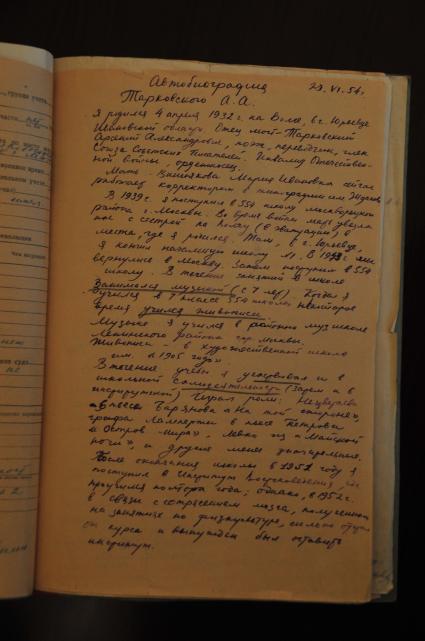 Автобиография 29.VI.54.
Тарковского А.А.
Я родился 4 апреля 1932 г. на Волге, в г. Юрьевце
Ивановской области. Отец мой – Тарковский
Арсений Александрович, поэт, переводчик, член
Союза Советских Писателей. Инвалид Отечествен-
ной войны, орденоносец.
Мать – Вишнякова Мария Ивановна сейчас
работает корректором в типографии им. Жданова
В 1939 г. я поступил в 554 школу москворецкого
района г. Москвы. Во время войны мать увезла
нас с сестрой на Волгу (в эвакуацию) в
места, где я родился. Там, в г. Юрьевце,
я кончил начальную школу №1. В 1943 г. мы
вернулись в Москву. Затем поступил в 554
школу. В течение занятий в школе
занимался музыкой (с 7 лет). Когда я
учился в 7 классе 554 школы некоторое
время учился живописи.
Музыке я учился в районной муз. школе
Ленинского района гор. Москвы.
Живописи – в художественной школе
им. "1905 года".
В течение учебы я участвовал и в
школьной самодеятельности (Затем и в
институтской) Играл роли:
в пьесе Барянова "На той стороне",
графа в пьесе Петрова
"Остров мира", Левко из "Майской
ночи", и другие менее
После окончания школы в 1951 году я
поступил в Институт Востоковедения, где
проучился полтора года; однако, в 1952 г.
в связи с сотрясением мозга, полученным
на занятиях по физкультуре, сильно отстал
от курса и вынужден был оставить
институт.